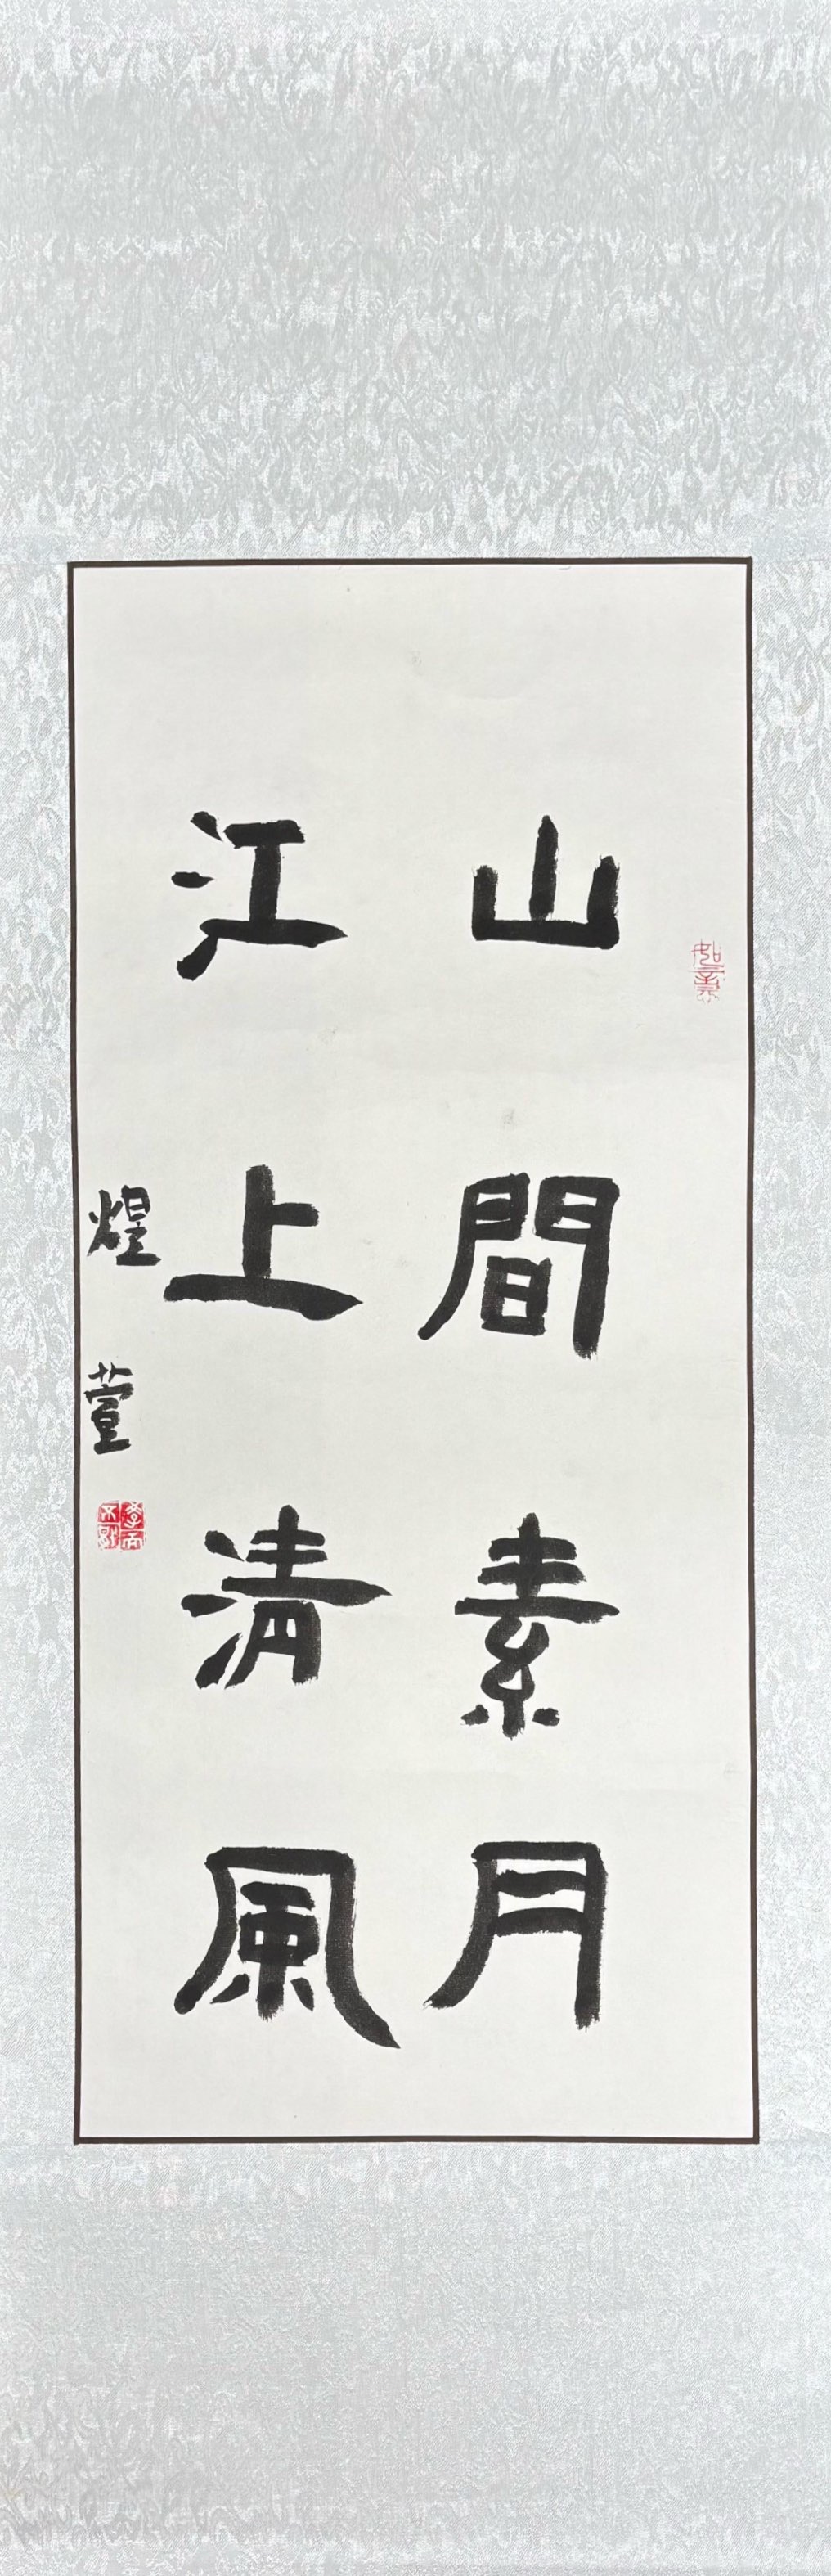 山間素月
江上清風
煌萱